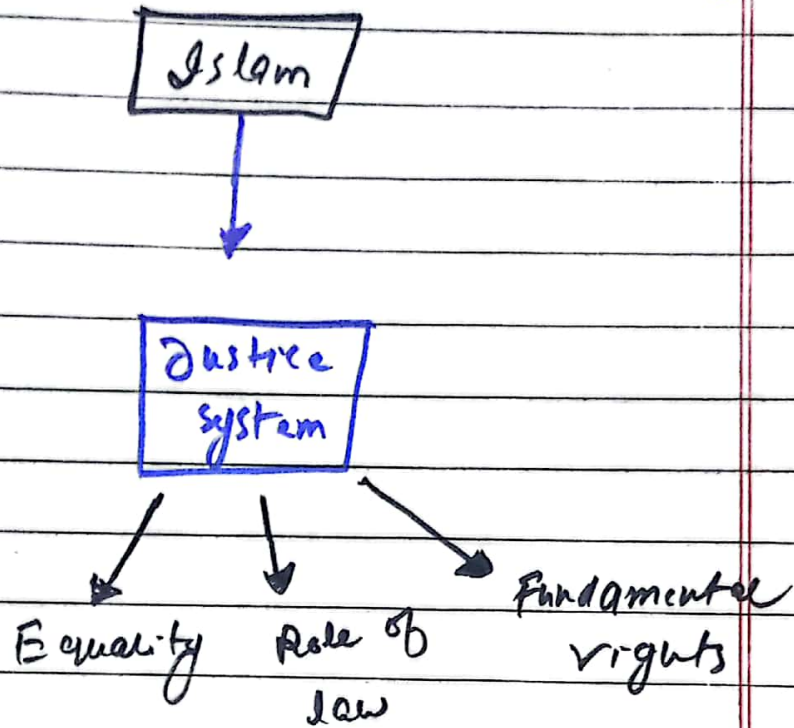 Islam
Justice
system
Equality
Role of
law
Fundamental
rights